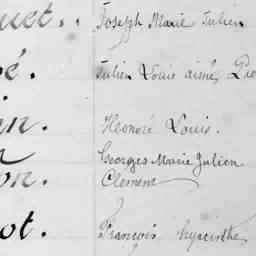 uet. Joseph Marie Julien
é. Julien Louis aimé,
in. Honoré Louis.
Georges Marie Julien
on. Clément
ot. François hyacinthe